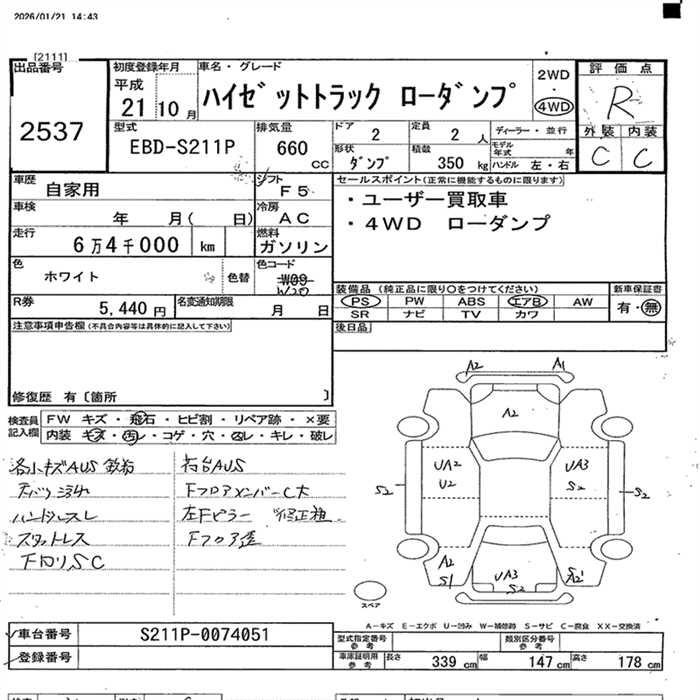 2026/01/21 14:43
[2111]
出品番号
2537
初度登録年月
平成
21 10 月
車名・グレード
ハイゼットトラック ローダンプ
2WD
・
4WD
評価点
R
外装 内装
C C
型式
EBD-S211P
排気量
660 cc
ドア 2
定員 2 人
ディーラー・並行
形状 ダンプ
積載 350 kg
モデル年式 年
ハンドル 左・右
車歴
自家用
シフト
F5
車検
年 月( 日)
冷房
AC
走行
6万4千000 km
燃料
ガソリン
色
ホワイト
色替
色コード
W09
W20
R券
5,440 円
名変通知期限
月 日
セールスポイント(正常に機能するものに限ります)
・ユーザー買取車
・4WD ローダンプ
装備品 (純正品に限り○をつけてください)
PS PW ABS エアB AW
SR ナビ TV カワ
新車保証書
有・無
後日品
注意事項申告欄(不具合内容等は具体的に記入して下さい)
修復歴 有〔箇所 〕
検査員
記入欄
FW キズ・飛石・ヒビ割・リペア跡・×要
内装 キズ・汚レ・コゲ・穴・凶レ・キレ・破レ
荷台AUS
Fフロアメンバー
左Fピラー
Fフロア歪
ハンドルスレ
下回りSC
A2 A1
A2
UA2
U2
UA3
S2
S2
S2
A2
S1
UA3
S2
S
A2
スペア
A−キズ E−エクボ U−凹み W−補修跡 S−サビ C−腐食 XX−交換済
車台番号
S211P-0074051
登録番号
型式指定番号
参考
類別区分番号
参考
車庫証明用
参考
長さ 339 cm
幅 147 cm
高さ 178 cm